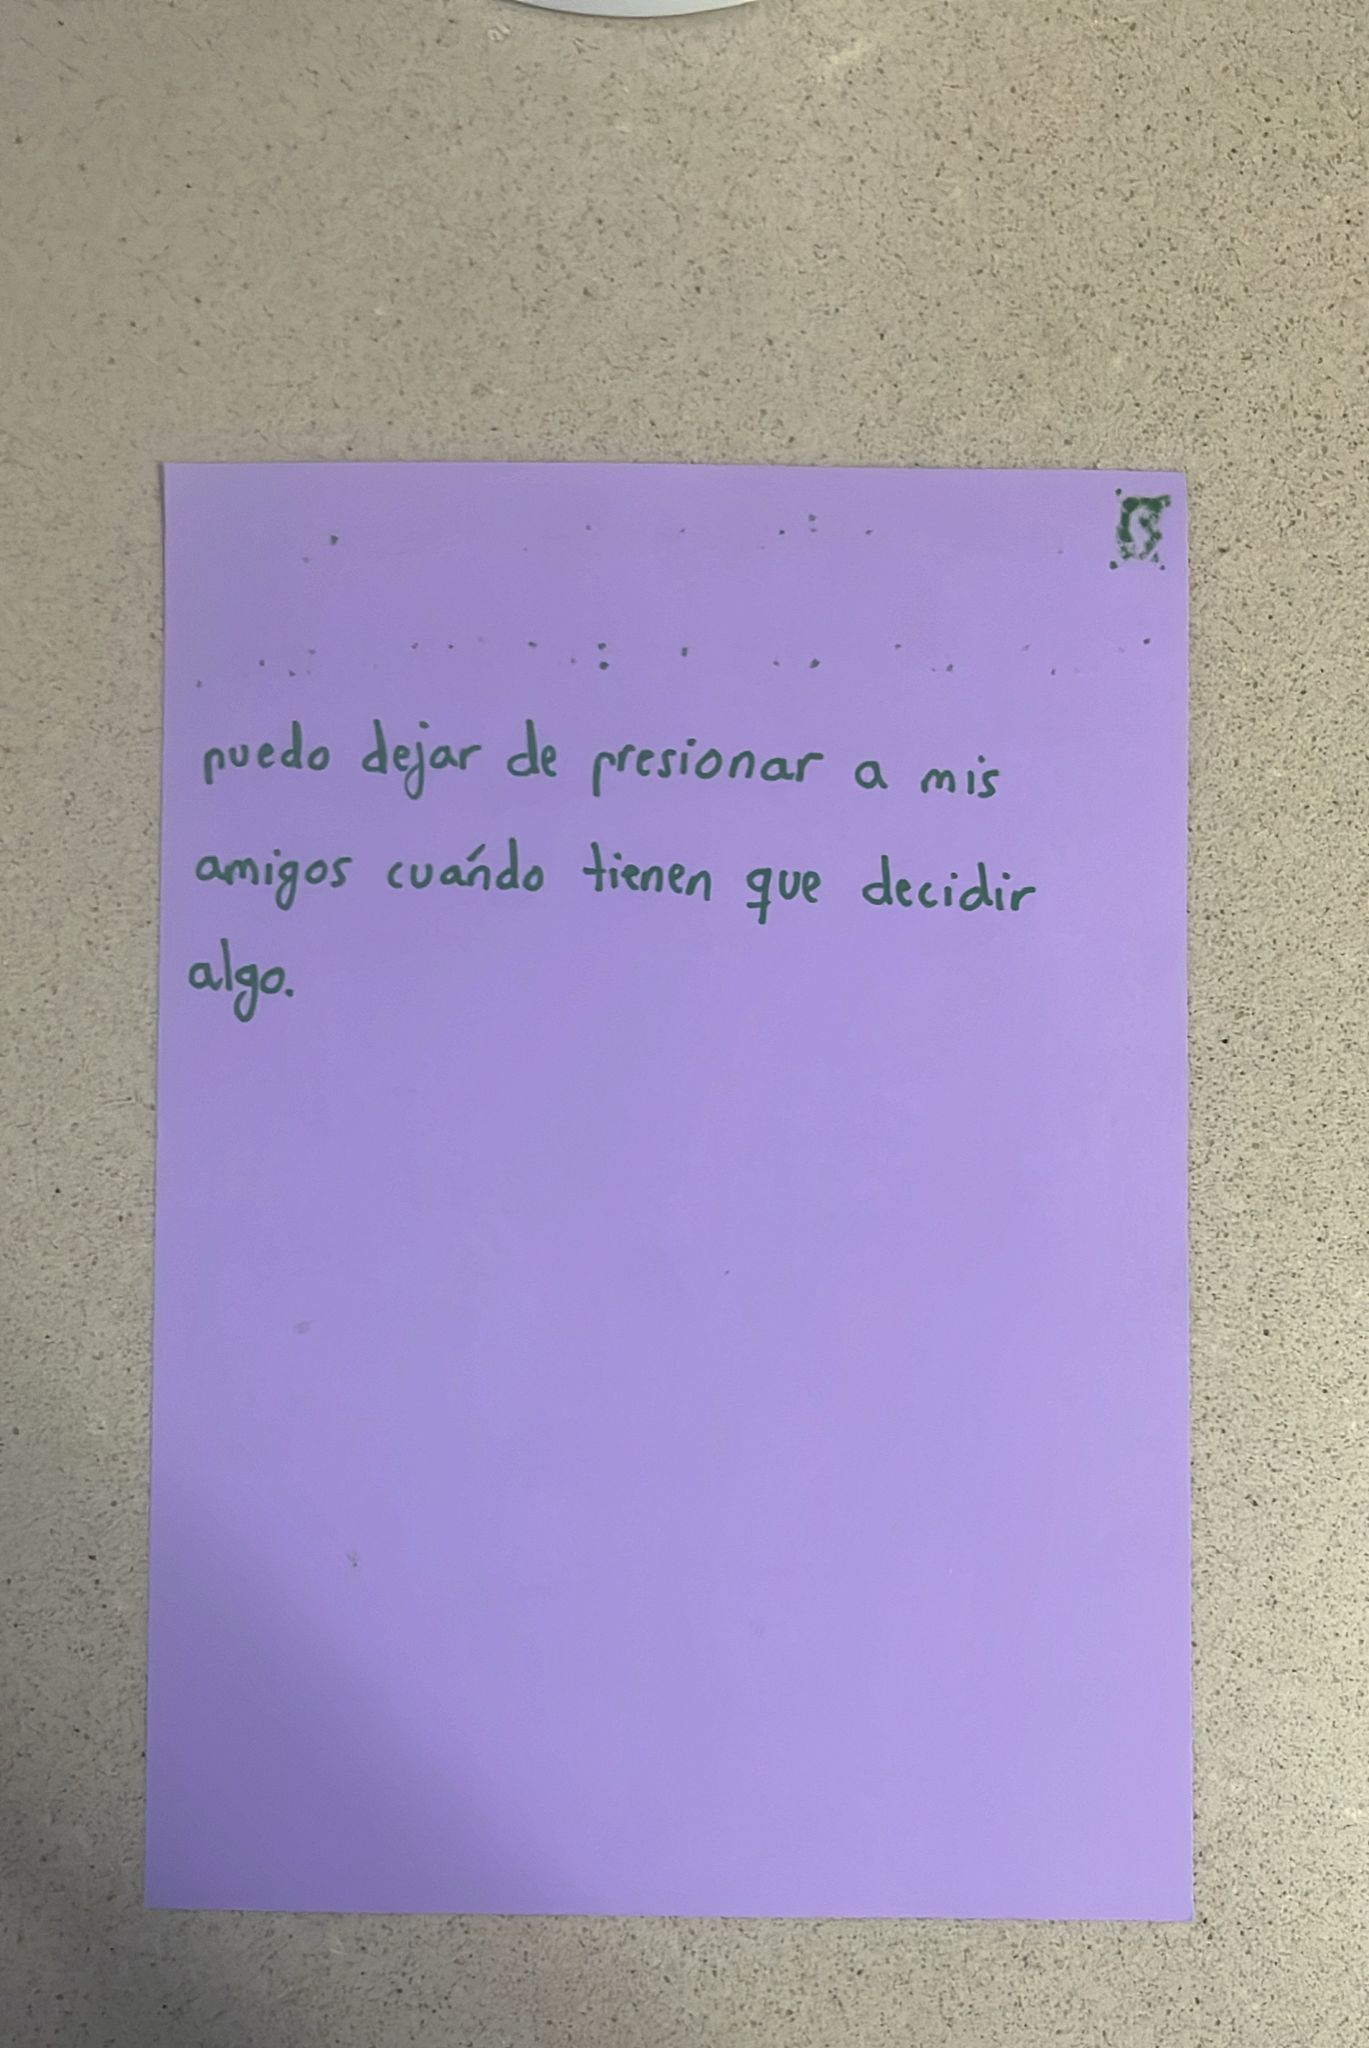 puedo dejar de presionar a mis
amigos cuándo tienen que decidir
algo.